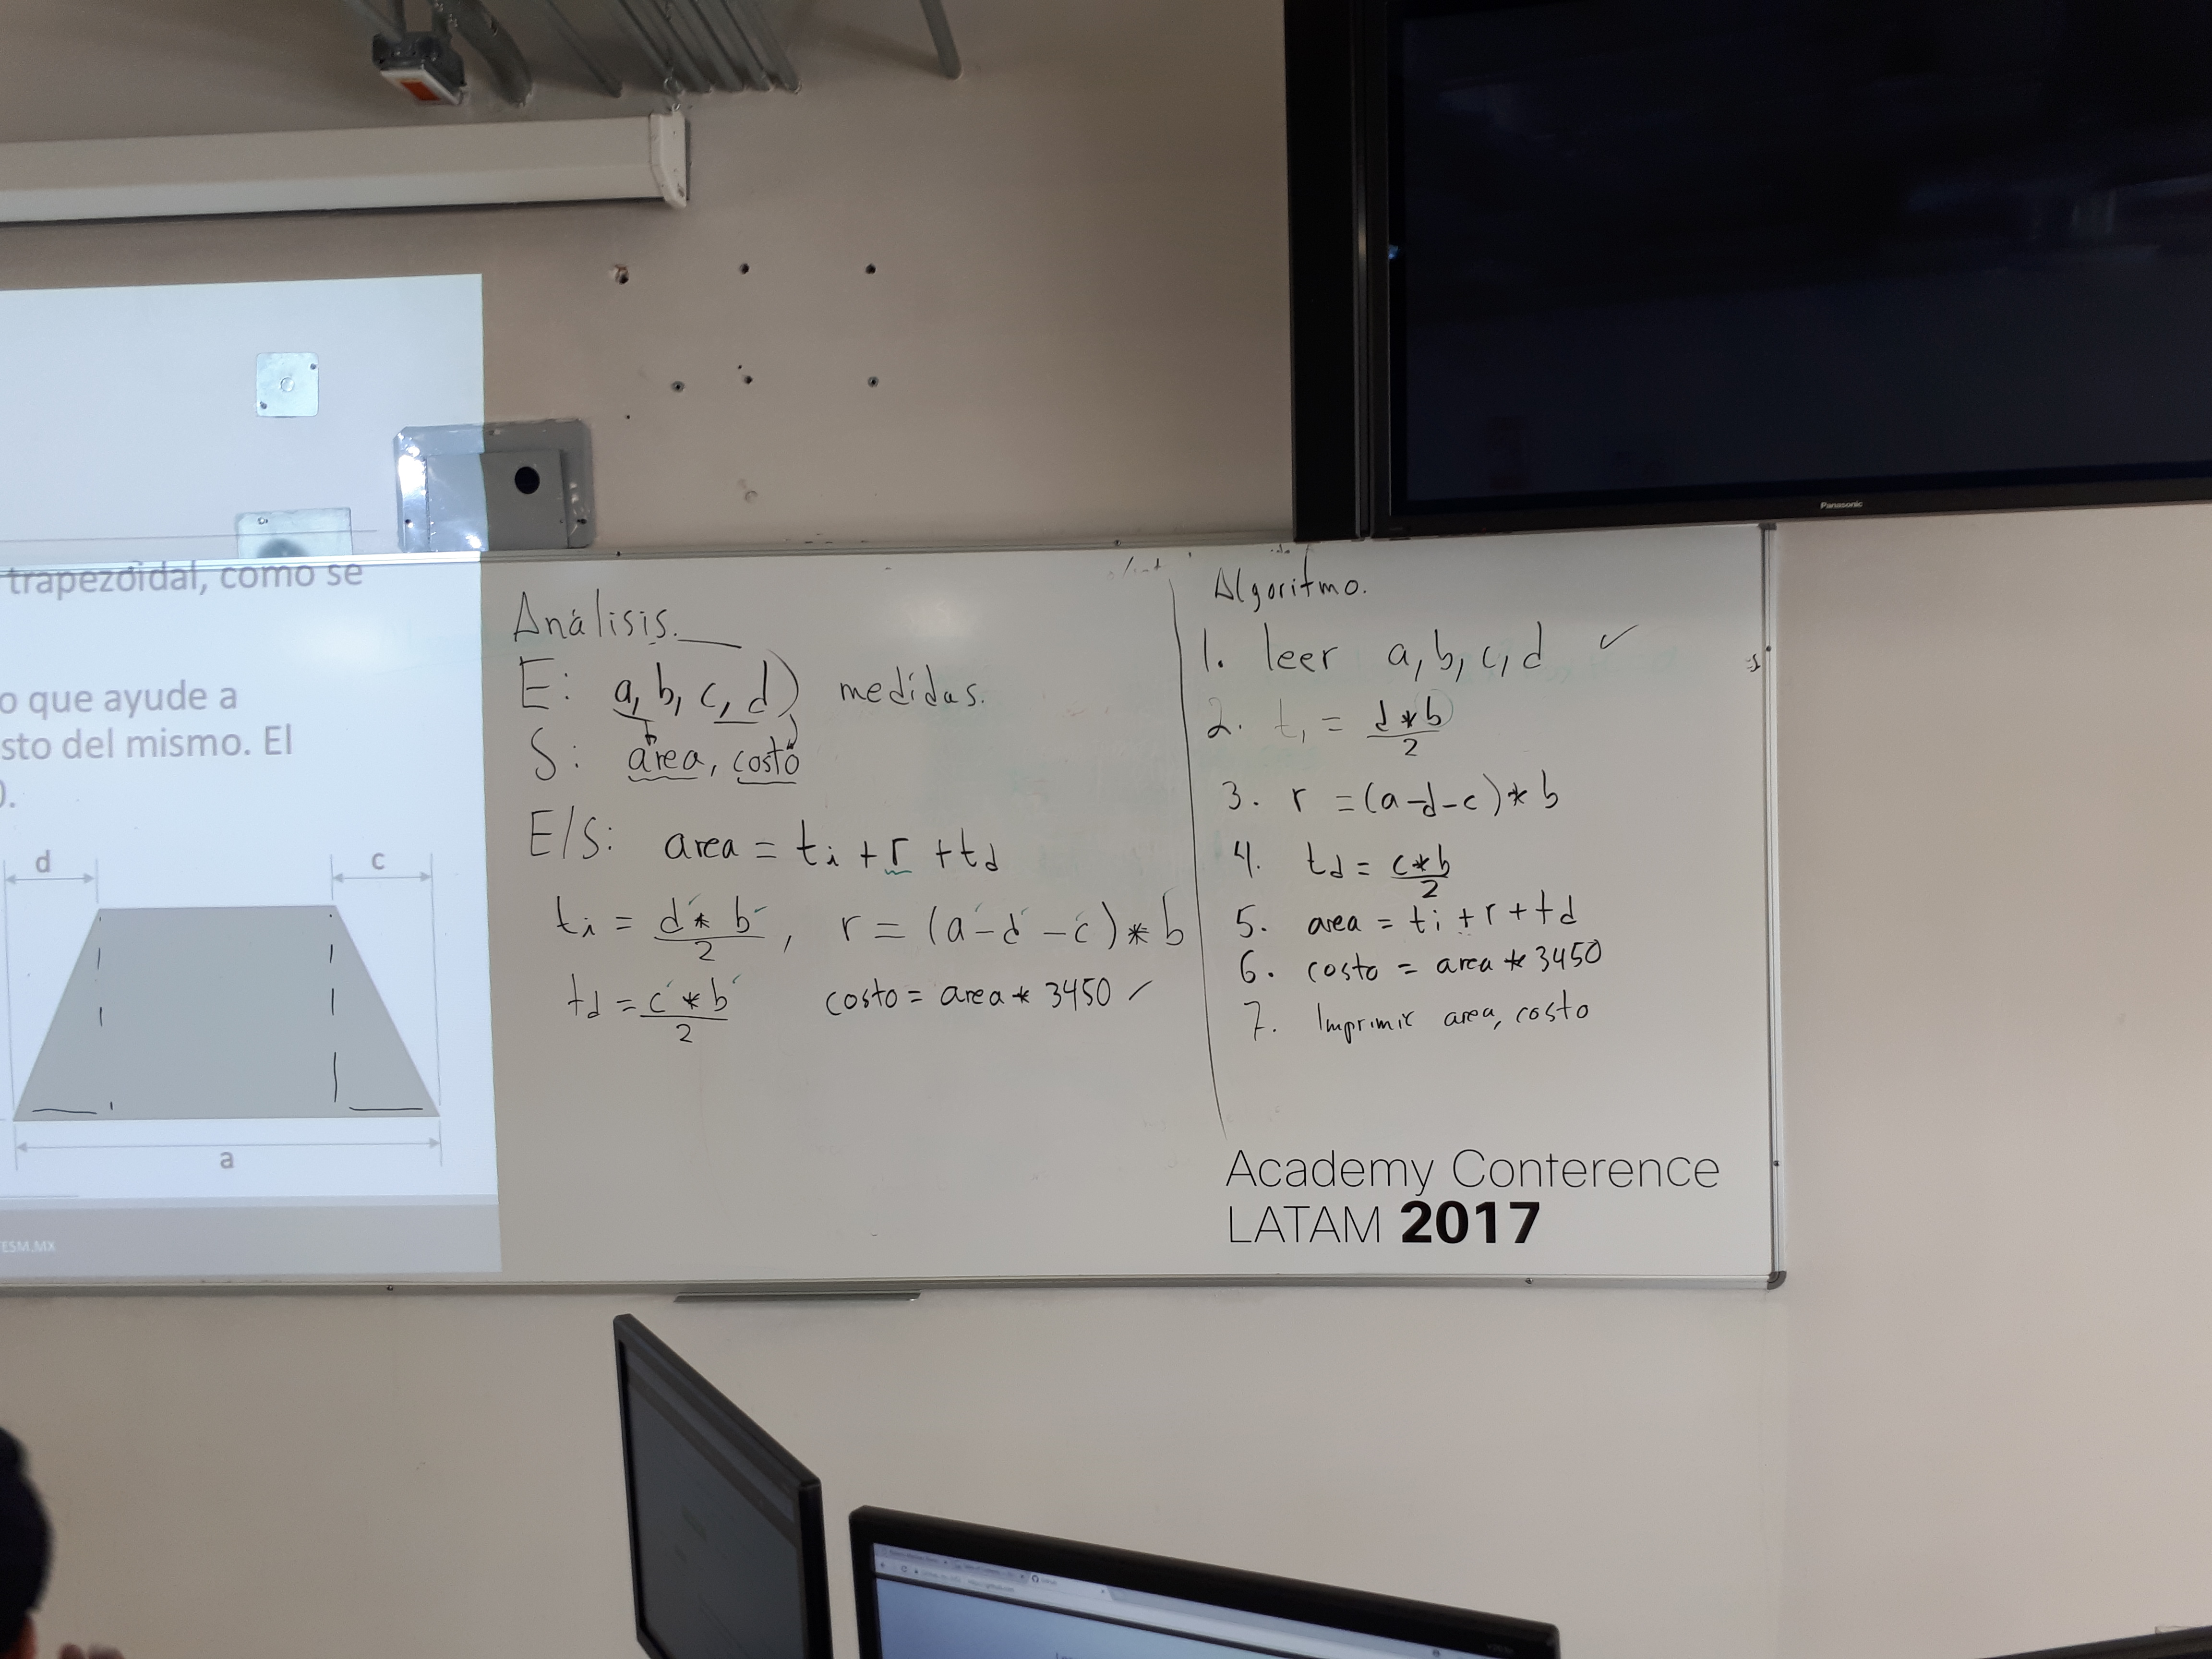 trapezoidal, como se
o que ayude a
sto del mismo. El
0.
d
c
a
ESM.MX
Análisis.
E: a, b, c, d) medidas.
S: área, costo
E/S: area = ti + r + td
ti = d * b / 2, r = (a - d - c) * b
td = c * b / 2 costo = area * 3450 ✓
Algoritmo.
1. leer a, b, c, d ✓
2. ti = d * b / 2
3. r = (a-d-c) * b
4. td = c*b / 2
5. area = ti + r + td
6. costo = area * 3450
7. Imprimir area, costo
Academy Conference
LATAM 2017
Panasonic